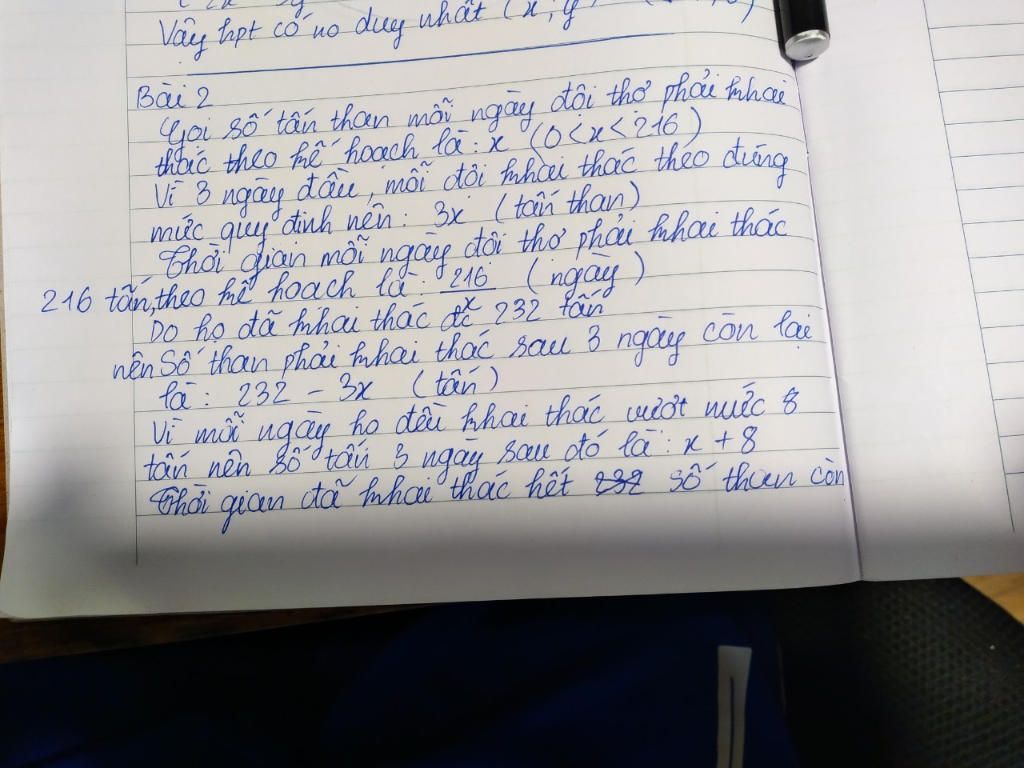 Vậy hpt có no duy nhất (x; y
Bài 2
Gọi số tấn than mỗi ngày đội thợ phải khai
thác theo kế hoạch là: x (0 < x < 216)
Vì 3 ngày đầu, mỗi đội khai thác theo đúng
mức quy định nên: 3x (tấn than)
Thời gian mỗi ngày đội thợ phải khai thác
216 tấn, theo kế hoạch là: 216/x (ngày)
Do họ đã khai thác đc 232 tấn
nên Số than phải khai thác sau 3 ngày còn lại
là: 232 - 3x (tấn)
Vì mỗi ngày họ đều khai thác vượt mức 8
tấn nên số tấn 3 ngày sau đó là: x + 8
Thời gian đã khai thác hết 232 số than còn